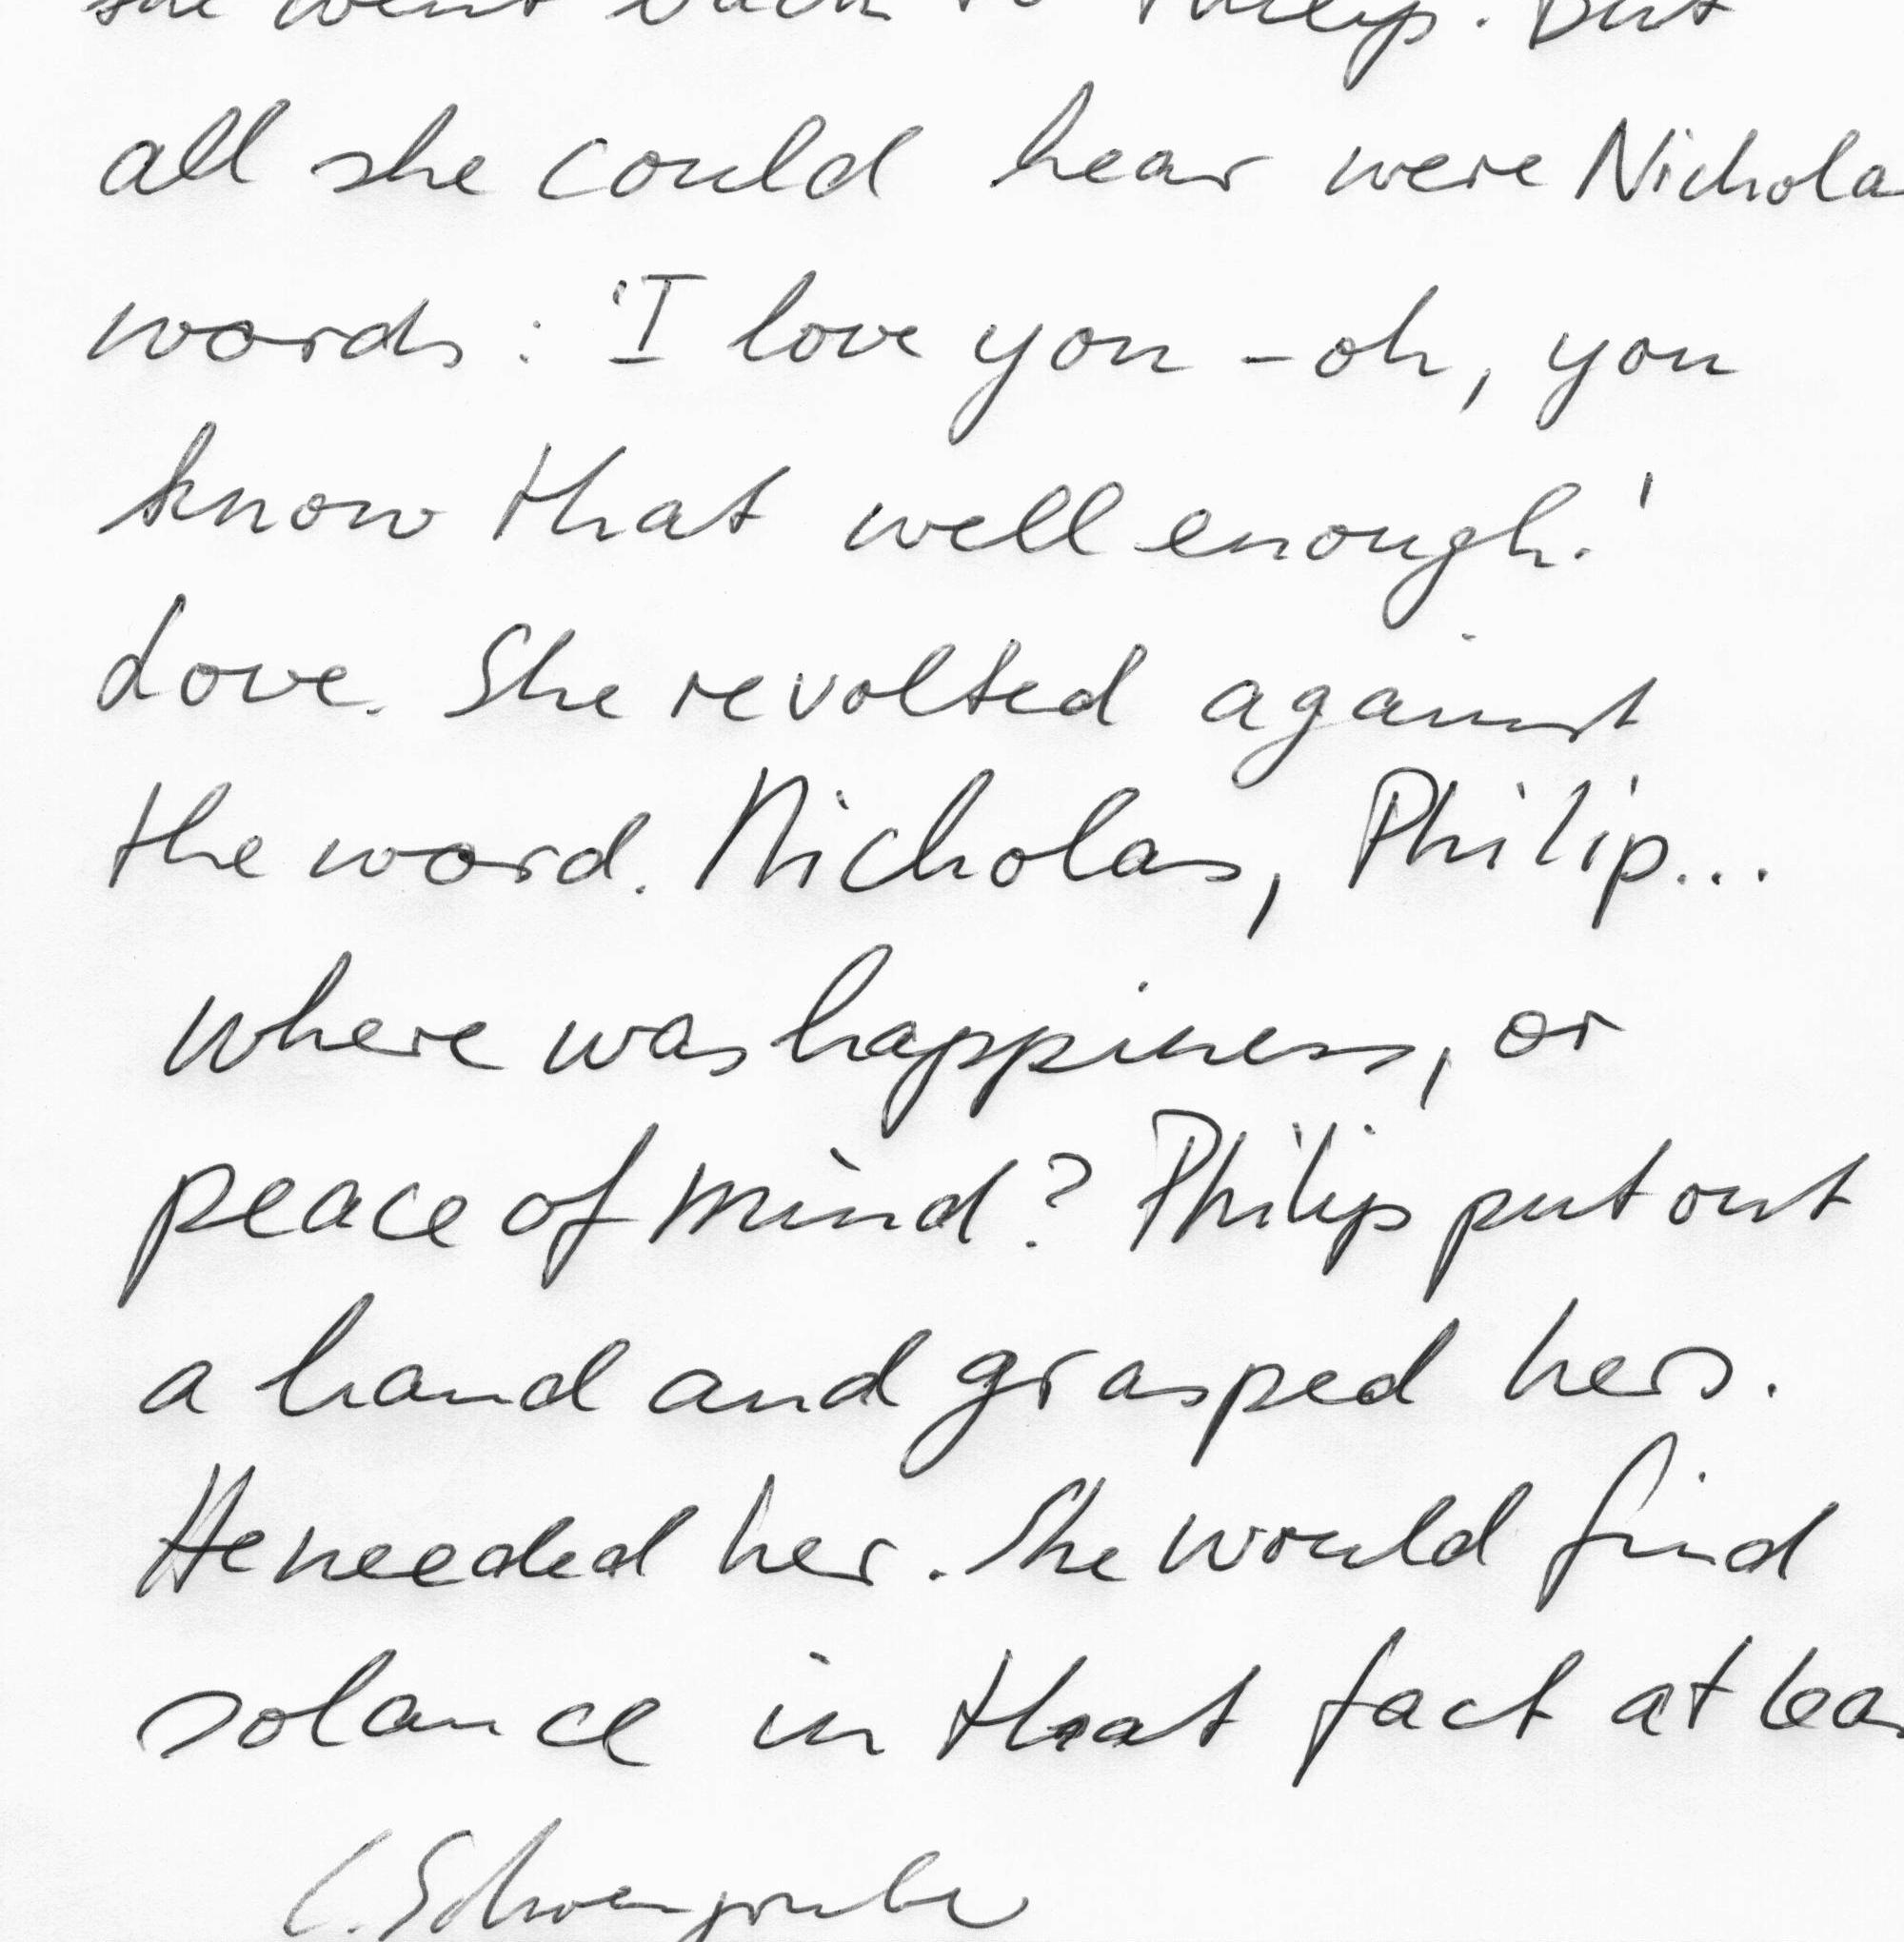 she went back to Philip. But
all she could hear were Nichola
words: 'I love you - oh, you
know that well enough.'
Love. She revolted against
the word. Nicholas, Philip...
where was happiness, or
peace of mind? Philip put out
a hand and grasped hers.
He needed her. She would find
solance in that fact at leas